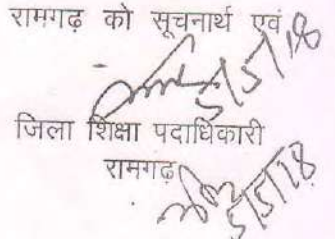 रामगढ़ को सूचनार्थ एवं
5/5/18
जिला शिक्षा पदाधिकारी
रामगढ़
5/5/18